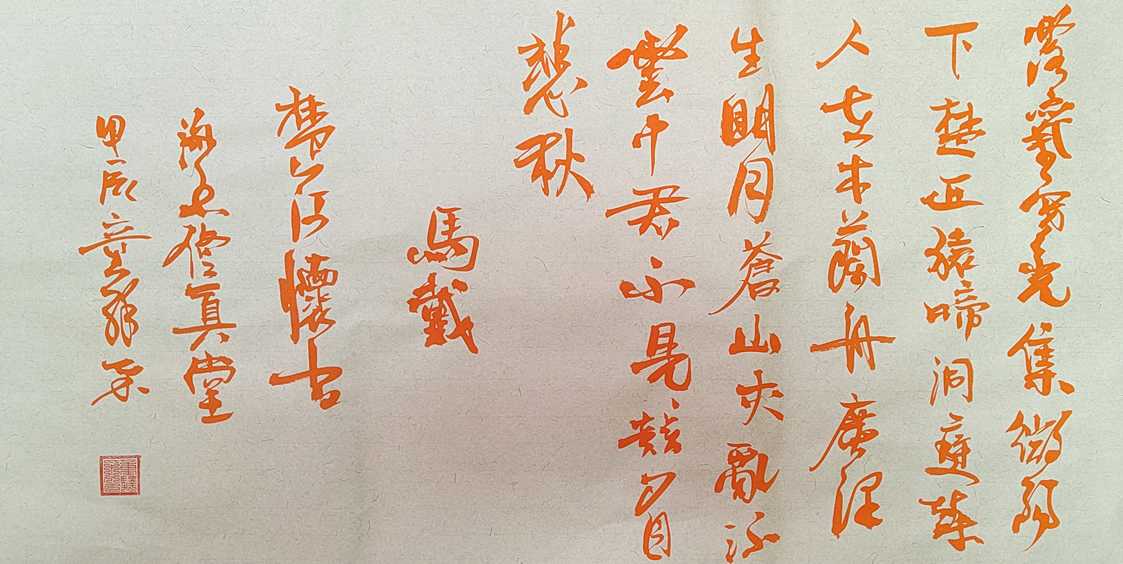 露氣寒光集微陽
下楚丘猿啼洞庭樹
人在木蘭舟廣澤
生明月蒼山夾亂流
雲中君不見竟夕自
悲秋
馬戴
楚江懷古
修真堂
甲辰